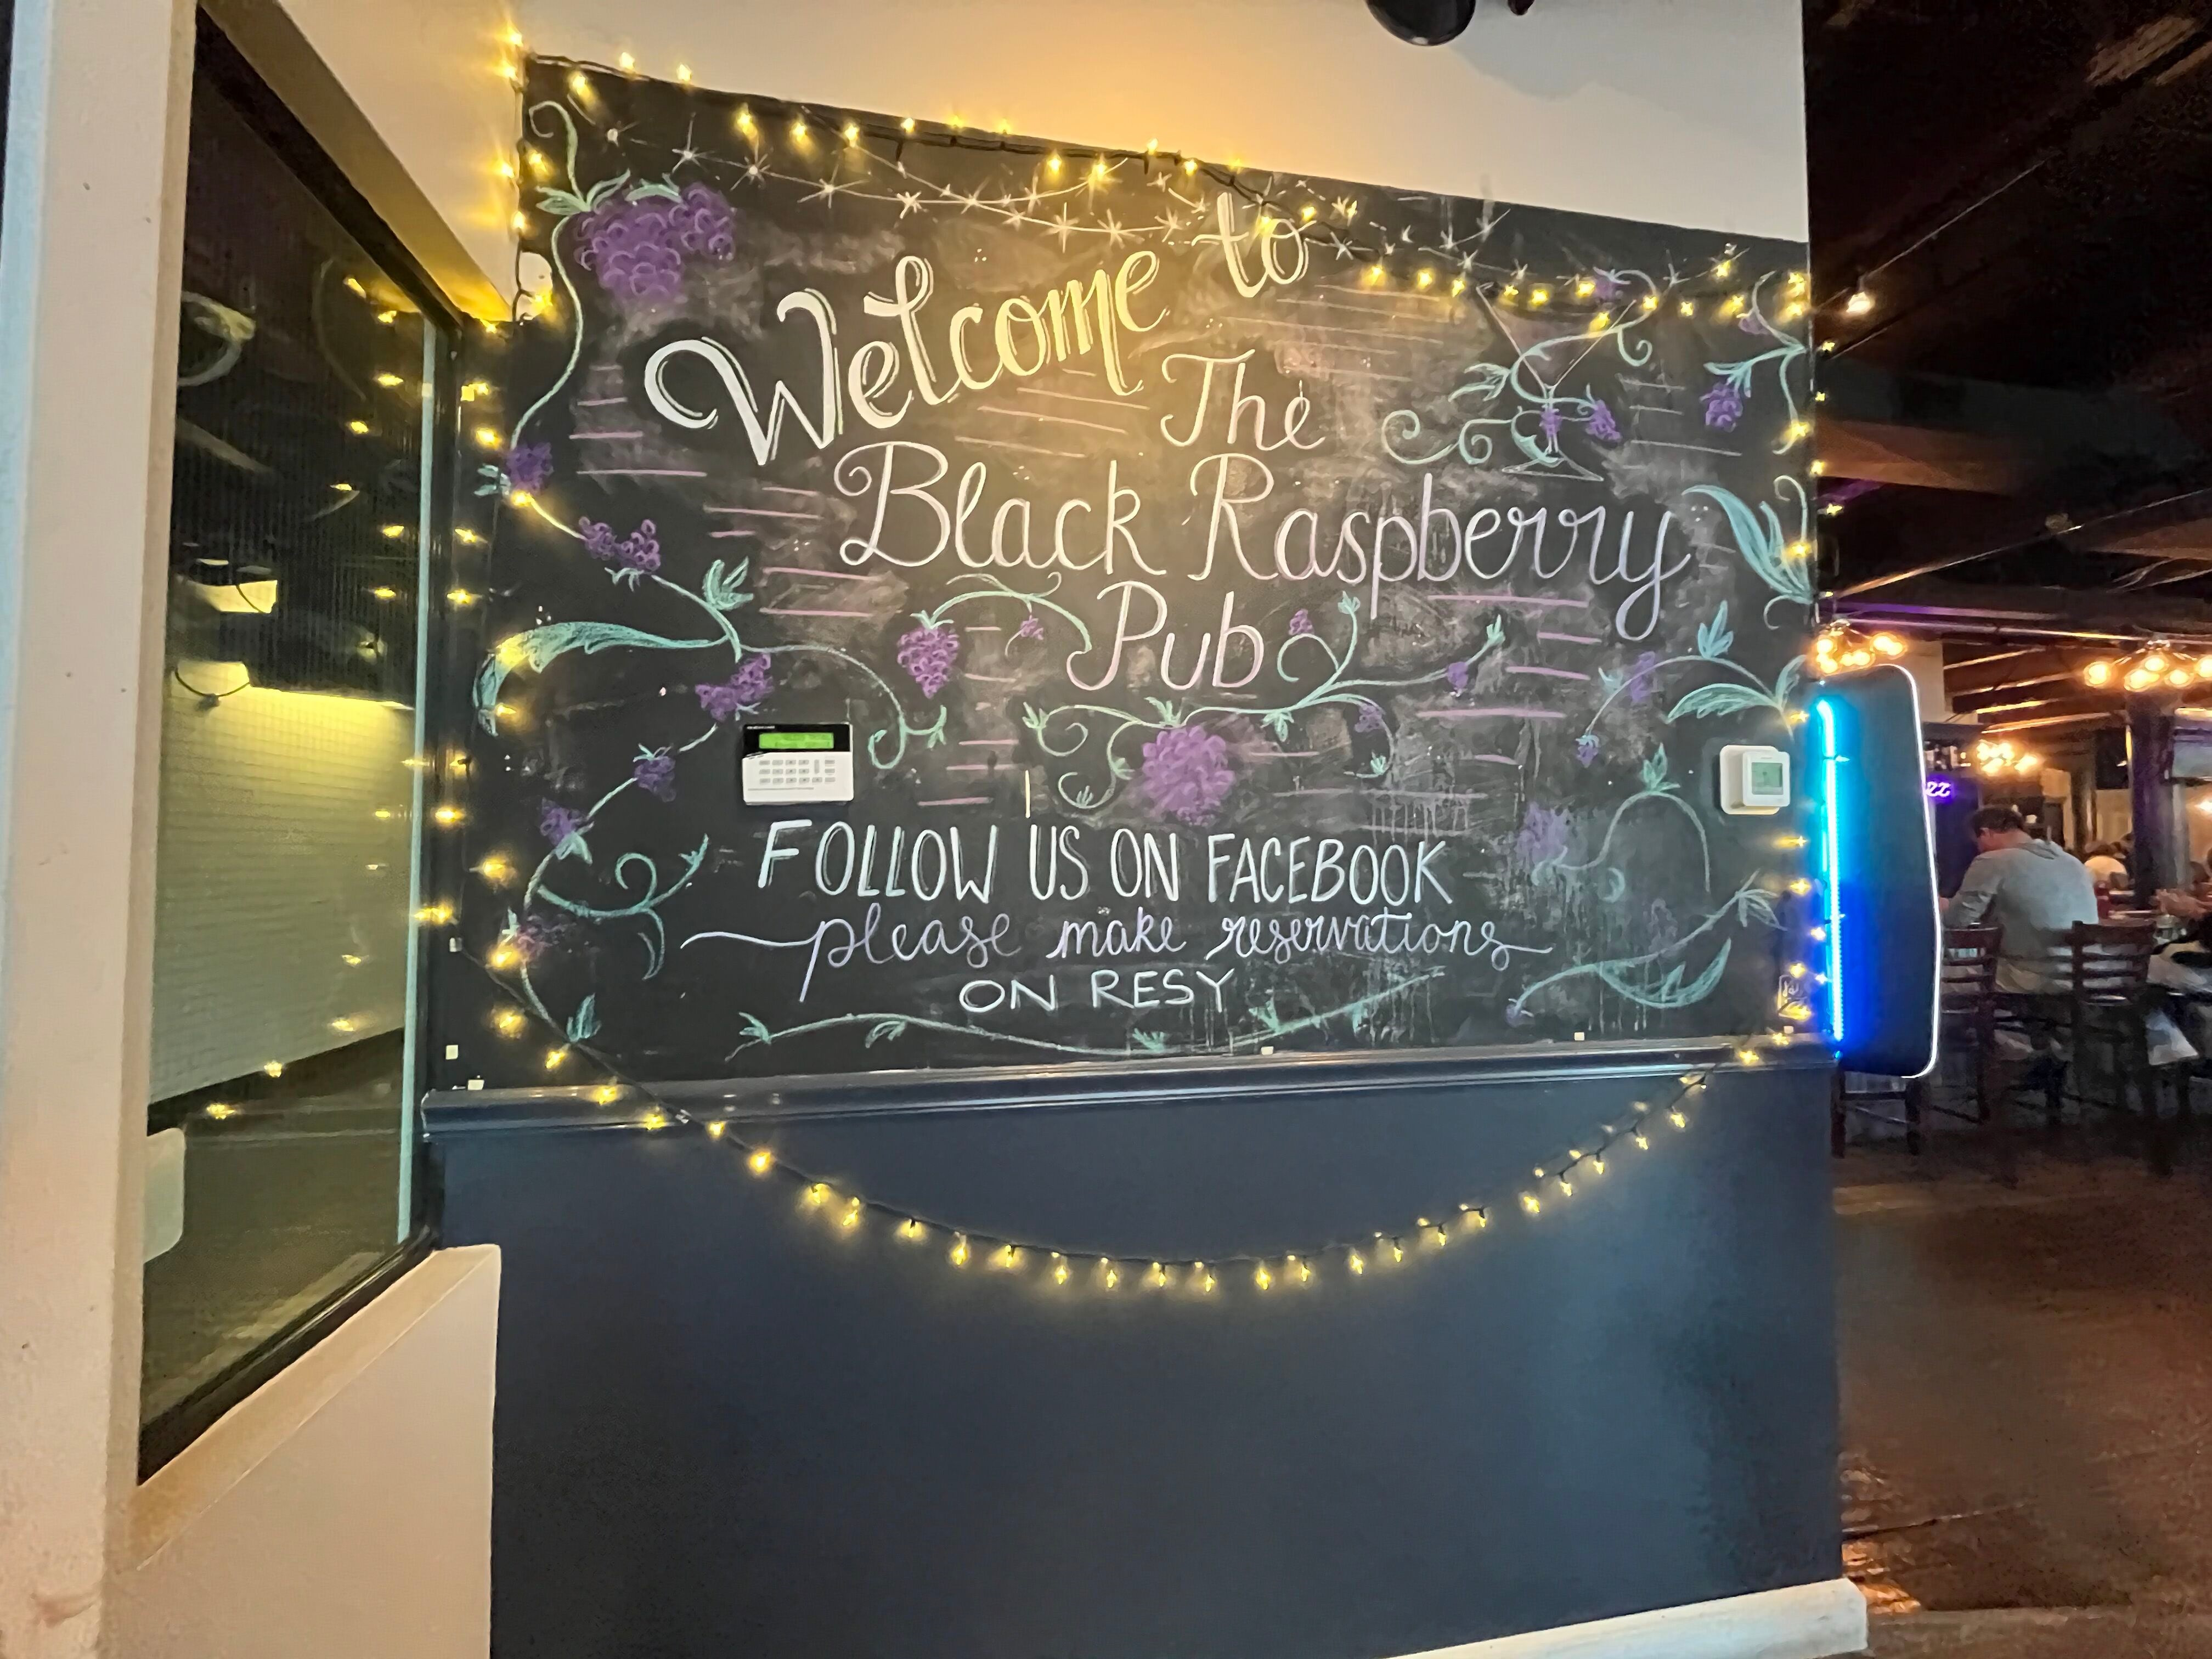 Welcome to
The
Black Raspberry
Pub
FOLLOW US ON FACEBOOK
please make reservations
ON RESY